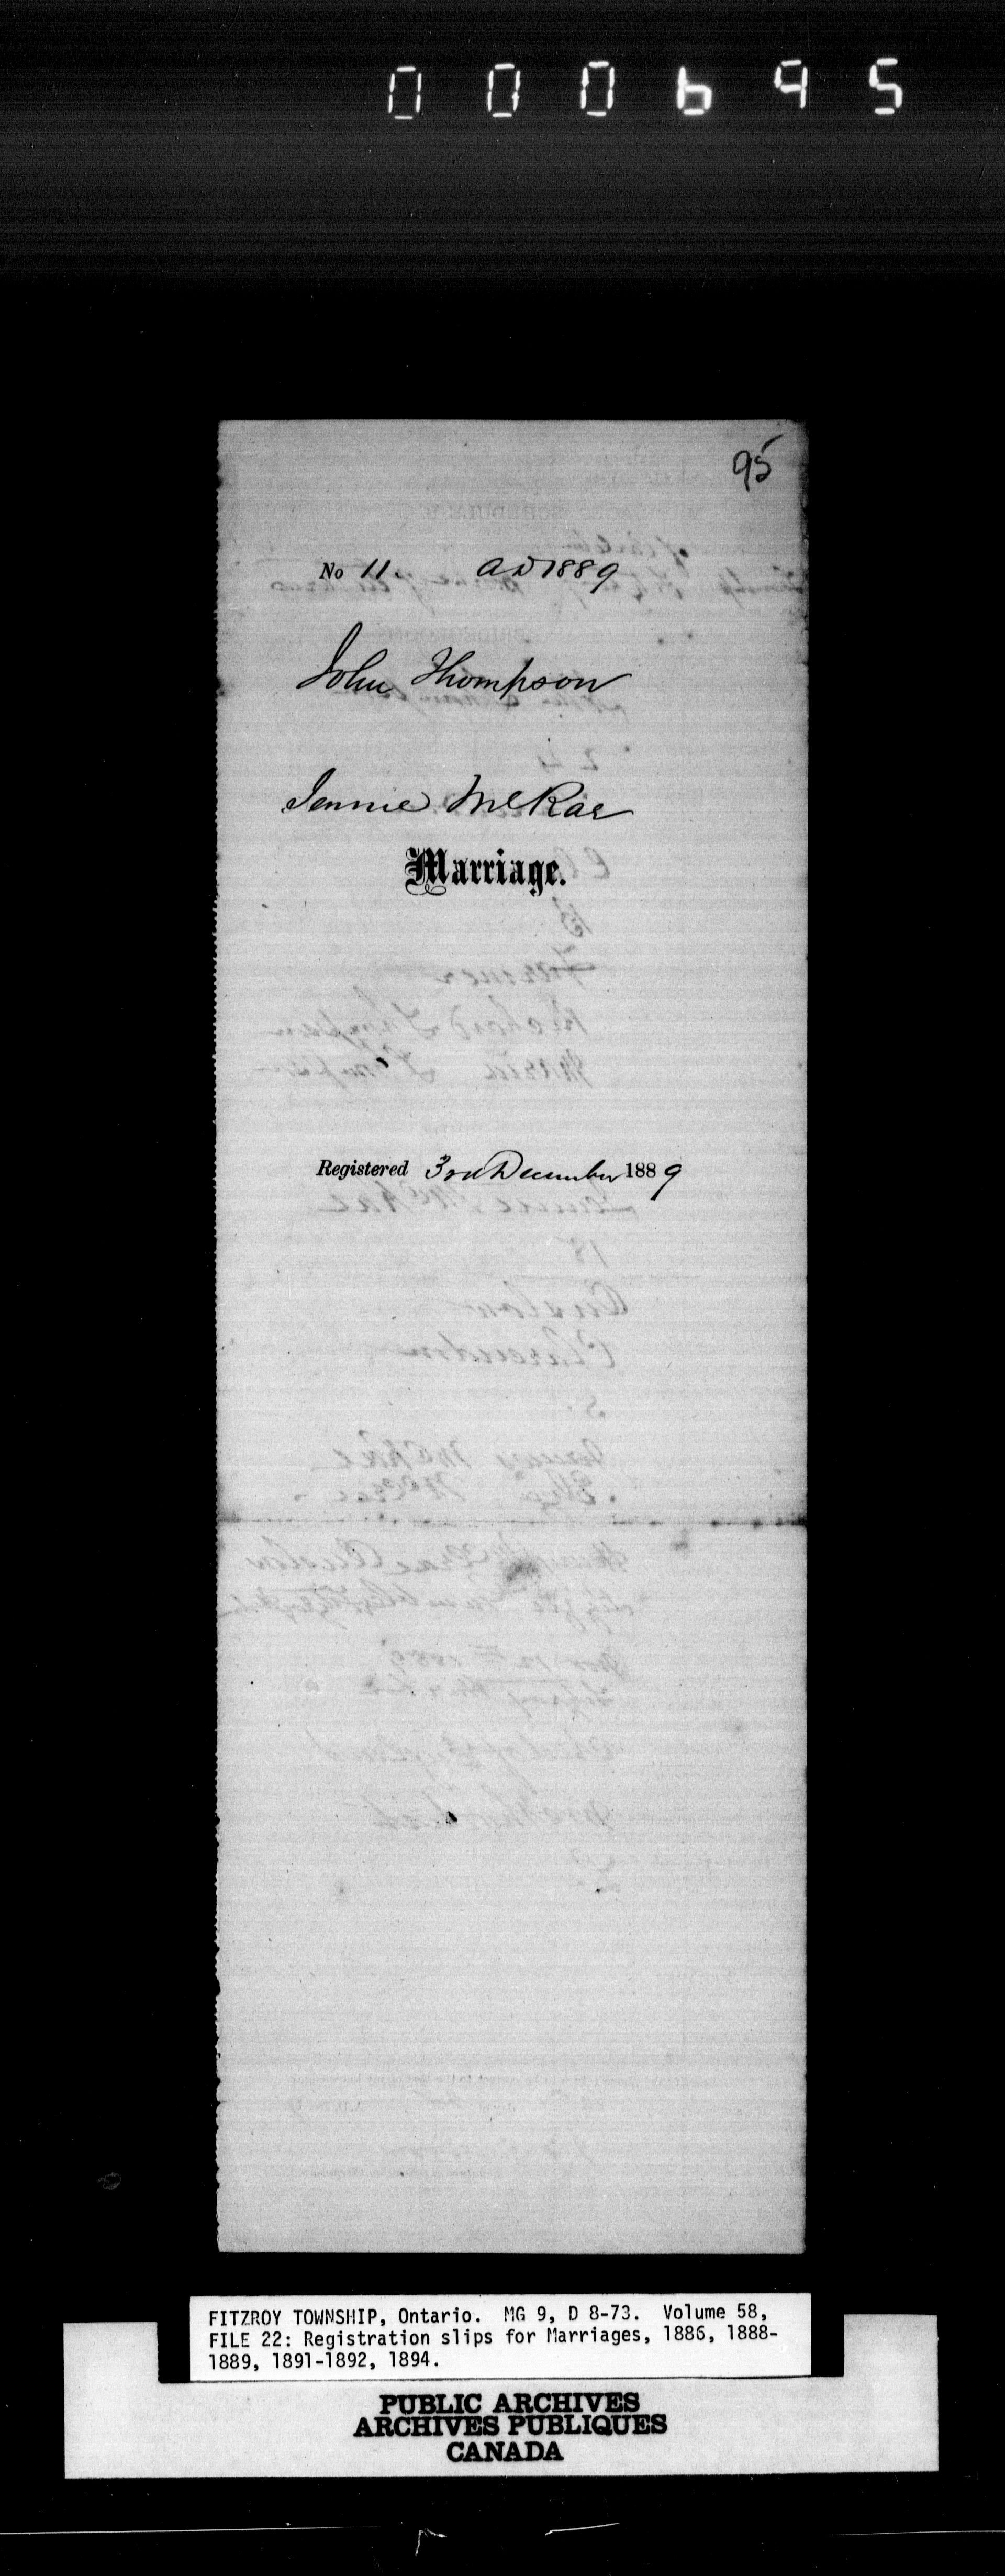 000695
95
No 11. AD 1889
John Thompson
Jennie McRae
Marriage.
Registered 3rd December 1889
FITZROY TOWNSHIP, Ontario. MG 9, D 8-73. Volume 58,
FILE 22: Registration slips for Marriages, 1886, 1888-
1889, 1891-1892, 1894.
PUBLIC ARCHIVES
ARCHIVES PUBLIQUES
CANADA